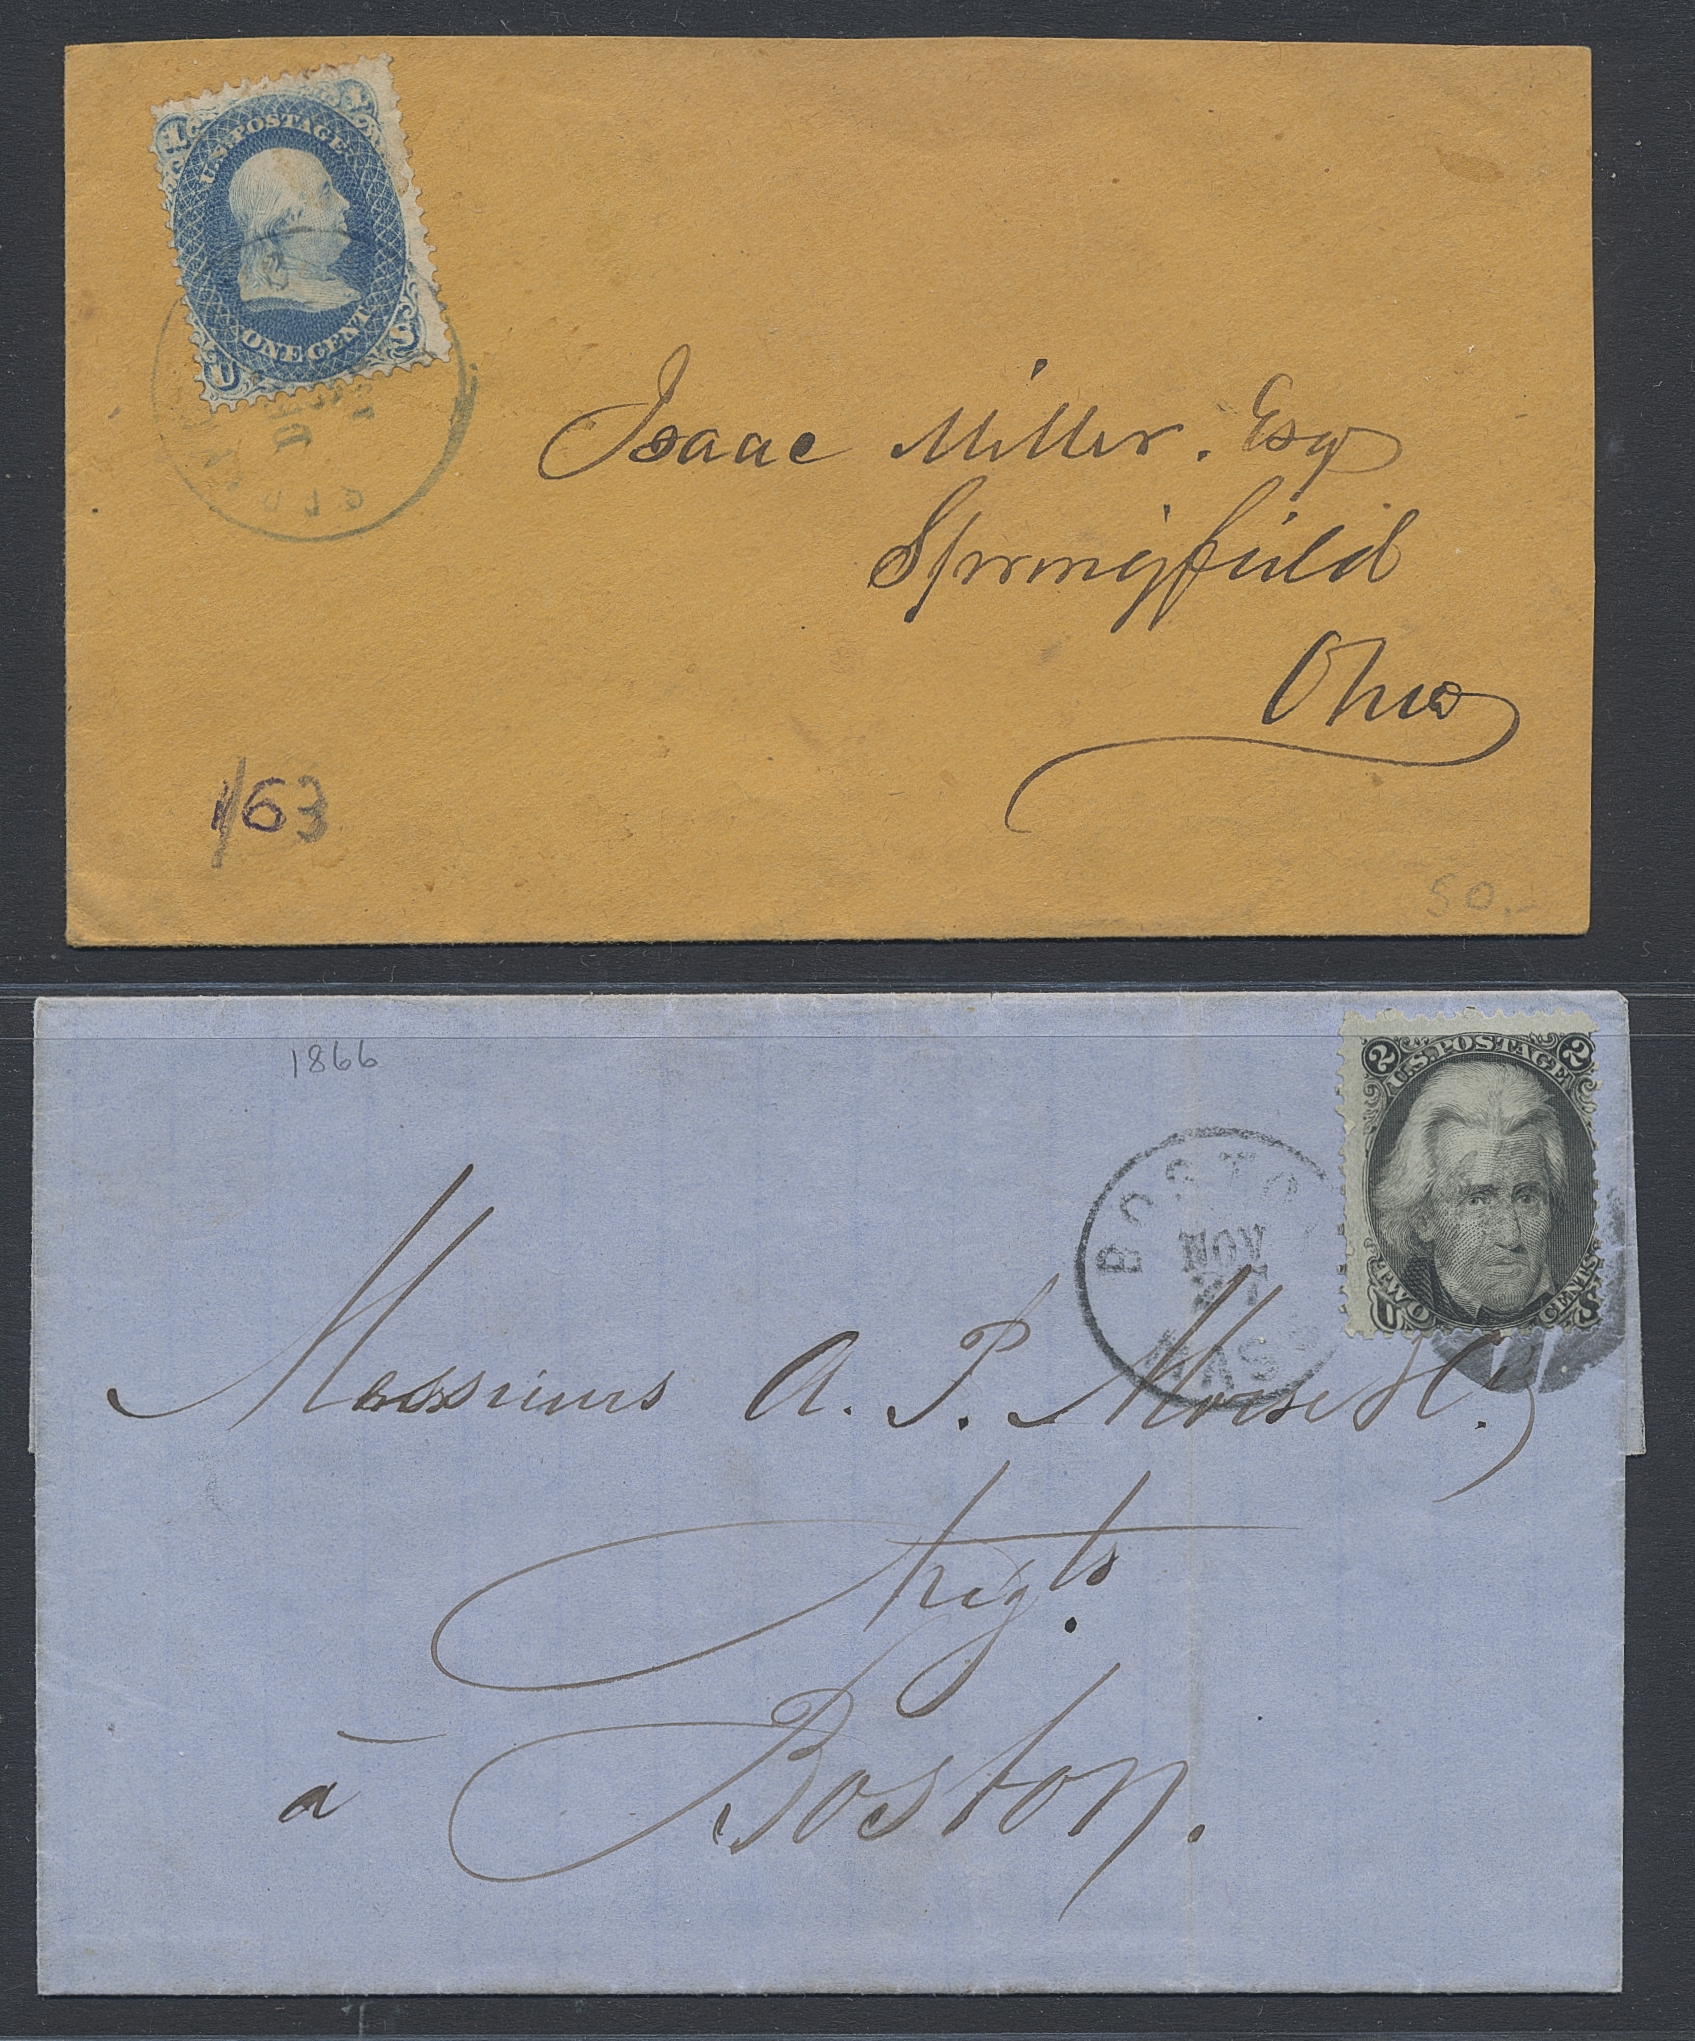 1 1
U.S. POSTAGE
ONE CENT
U S
DE
Isaac Miller. Esq
Springfield
Ohio
/63
50.-
1866
2 2
U.S. POSTAGE
TWO CENTS
U S
BOSTO
NOV
MASS
Messieurs A. P. Morse & C.
Neg.ts
à
Boston.